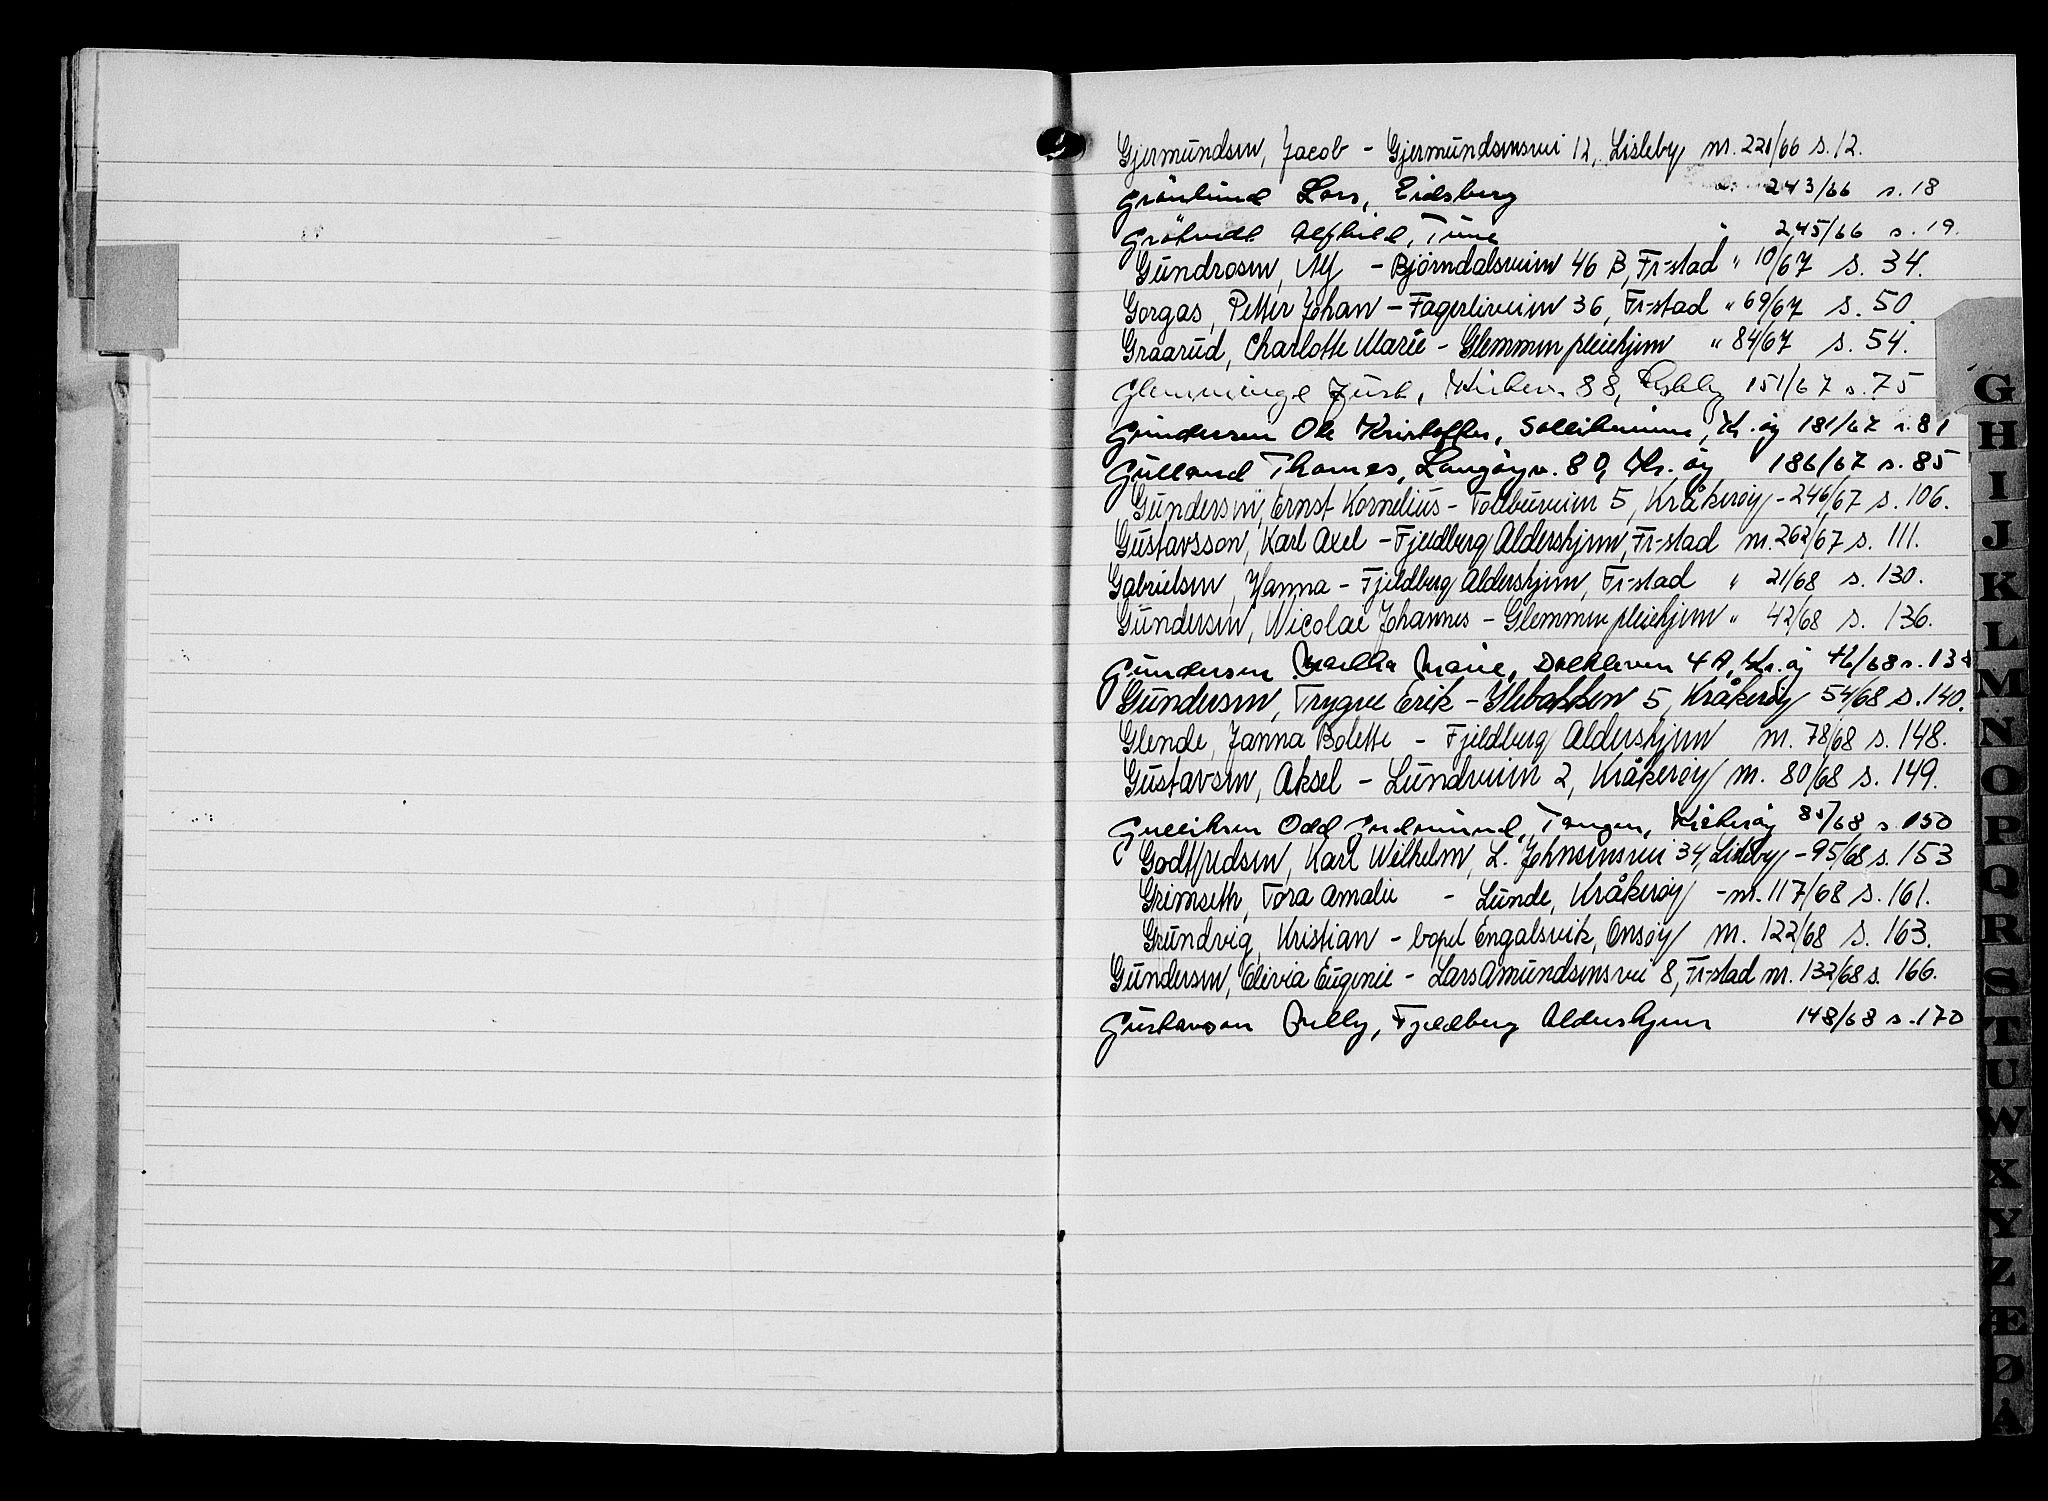 Gjermundsen, Jacob - Gjermundsensvei 12, Lisleby nr. 221/66 s. 12.
Grönlund Lars, Eidsberg 243/66 s. 18
Alfhild, Tune " 245/66 s. 19.
Gundrosen, Alf - Bjørndalsveien 46 B, Fr-stad " 10/67 s. 34.
Gorgas, Petter Johan - Fagerliveien 36, Fr-stad " 69/67 s. 50
Graarud, Charlotte Marie - Glemmen pleiehjem " 84/67 s. 54.
Glemminge Just, 88, Lisleby 151/67 s. 75
Gundersen Ole Kristoffer, Kr. øy 181/67 s. 81
Gulland Thomas, Langøyv. 80, Kr. øy 186/67 s. 85
Gundersen, Ernst Kornelius - Tollbuveien 5, Kråkerøy - 246/67 s. 106.
Gustavsson, Karl Axel - Fjeldberg Aldershjem, Fr-stad nr. 262/67 s. 111.
Gabrielsen, Hanna - Fjeldberg Aldershjem, Fr-stad " 21/68 s. 130.
Gundersen, Nicolai Johannes - Glemmen pleiehjem " 42/68 s. 136.
Gundersen Martha Marie, Dalkleven 4 A, Kr. øy 46/68 s. 138
Gundersen, Trygve Erik - Glebakken 5, Kråkerøy 54/68 s. 140.
Glende, Janna Bolette - Fjeldberg Aldershjem nr. 78/68 s. 148.
Gustavsen, Aksel - Lundveien 2, Kråkerøy nr. 80/68 s. 149.
Gulliksen Odd Gudmund, Tangen, Kråkerøy 85/68 s. 150
Godtfredsen, Karl Wilhelm, L. Johnsensvei 34, Lisleby - 95/68 s. 153
Grimseth, Tora Amalie - Lunde, Kråkerøy - nr. 117/68 s. 161.
Grundvig, Kristian - bopel Engalsvik, Onsøy nr. 122/68 s. 163.
Gundersen, Elivia Eugenie - Lars Amundsensvei 8, Fr-stad nr. 132/68 s. 166.
Gustavson Billy, Fjeldberg Aldershjem 148/68 s. 170
G
H
I
J
K
L
M
N
O
P
Q
R
S
T
U
W
X
Y
Z
Æ
Ø
Å